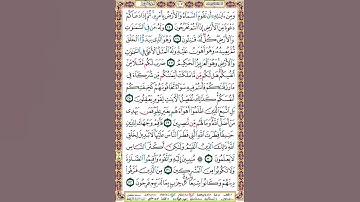 وَمِنْ ءَايَٰتِهِۦٓ أَن تَقُومَ ٱلسَّمَآءُ وَٱلْأَرْضُ بِأَمْرِهِۦ ثُمَّ إِذَا دَعَاكُمْ
دَعْوَةً مِّنَ ٱلْأَرْضِ إِذَآ أَنتُمْ تَخْرُجُونَ ٢٥ وَلَهُۥ مَن فِى ٱلسَّمَٰوَٰتِ
وَٱلْأَرْضِ كُلٌّ لَّهُۥ قَٰنِتُونَ ٢٦ وَهُوَ ٱلَّذِى يَبْدَؤُا۟ ٱلْخَلْقَ
ثُمَّ يُعِيدُهُۥ وَهُوَ أَهْوَنُ عَلَيْهِ وَلَهُ ٱلْمَثَلُ ٱلْأَعْلَىٰ فِى ٱلسَّمَٰوَٰتِ
وَٱلْأَرْضِ وَهُوَ ٱلْعَزِيزُ ٱلْحَكِيمُ ٢٧ ضَرَبَ لَكُم مَّثَلًا مِّنْ
أَنفُسِكُمْ هَل لَّكُم مِّن مَّا مَلَكَتْ أَيْمَٰنُكُم مِّن شُرَكَآءَ فِى
مَا رَزَقْنَٰكُمْ فَأَنتُمْ فِيهِ سَوَآءٌ تَخَافُونَهُمْ كَخِيفَتِكُمْ
أَنفُسَكُمْ كَذَٰلِكَ نُفَصِّلُ ٱلْءَايَٰتِ لِقَوْمٍ يَعْقِلُونَ ٢٨
بَلِ ٱتَّبَعَ ٱلَّذِينَ ظَلَمُوٓا۟ أَهْوَآءَهُم بِغَيْرِ عِلْمٍ فَمَن يَهْدِى
مَنْ أَضَلَّ ٱللَّهُ وَمَا لَهُم مِّن نَّٰصِرِينَ ٢٩ فَأَقِمْ وَجْهَكَ لِلدِّينِ
حَنِيفًا فِطْرَتَ ٱللَّهِ ٱلَّتِى فَطَرَ ٱلنَّاسَ عَلَيْهَا لَا تَبْدِيلَ لِخَلْقِ
ٱللَّهِ ذَٰلِكَ ٱلدِّينُ ٱلْقَيِّمُ وَلَٰكِنَّ أَكْثَرَ ٱلنَّاسِ
لَا يَعْلَمُونَ ٣٠ ۞ مُنِيبِينَ إِلَيْهِ وَٱتَّقُوهُ وَأَقِيمُوا۟ ٱلصَّلَوٰةَ
وَلَا تَكُونُوا۟ مِنَ ٱلْمُشْرِكِينَ ٣١ مِنَ ٱلَّذِينَ فَرَّقُوا۟
دِينَهُمْ وَكَانُوا۟ شِيَعًا كُلُّ حِزْبٍۭ بِمَا لَدَيْهِمْ فَرِحُونَ ٣٢